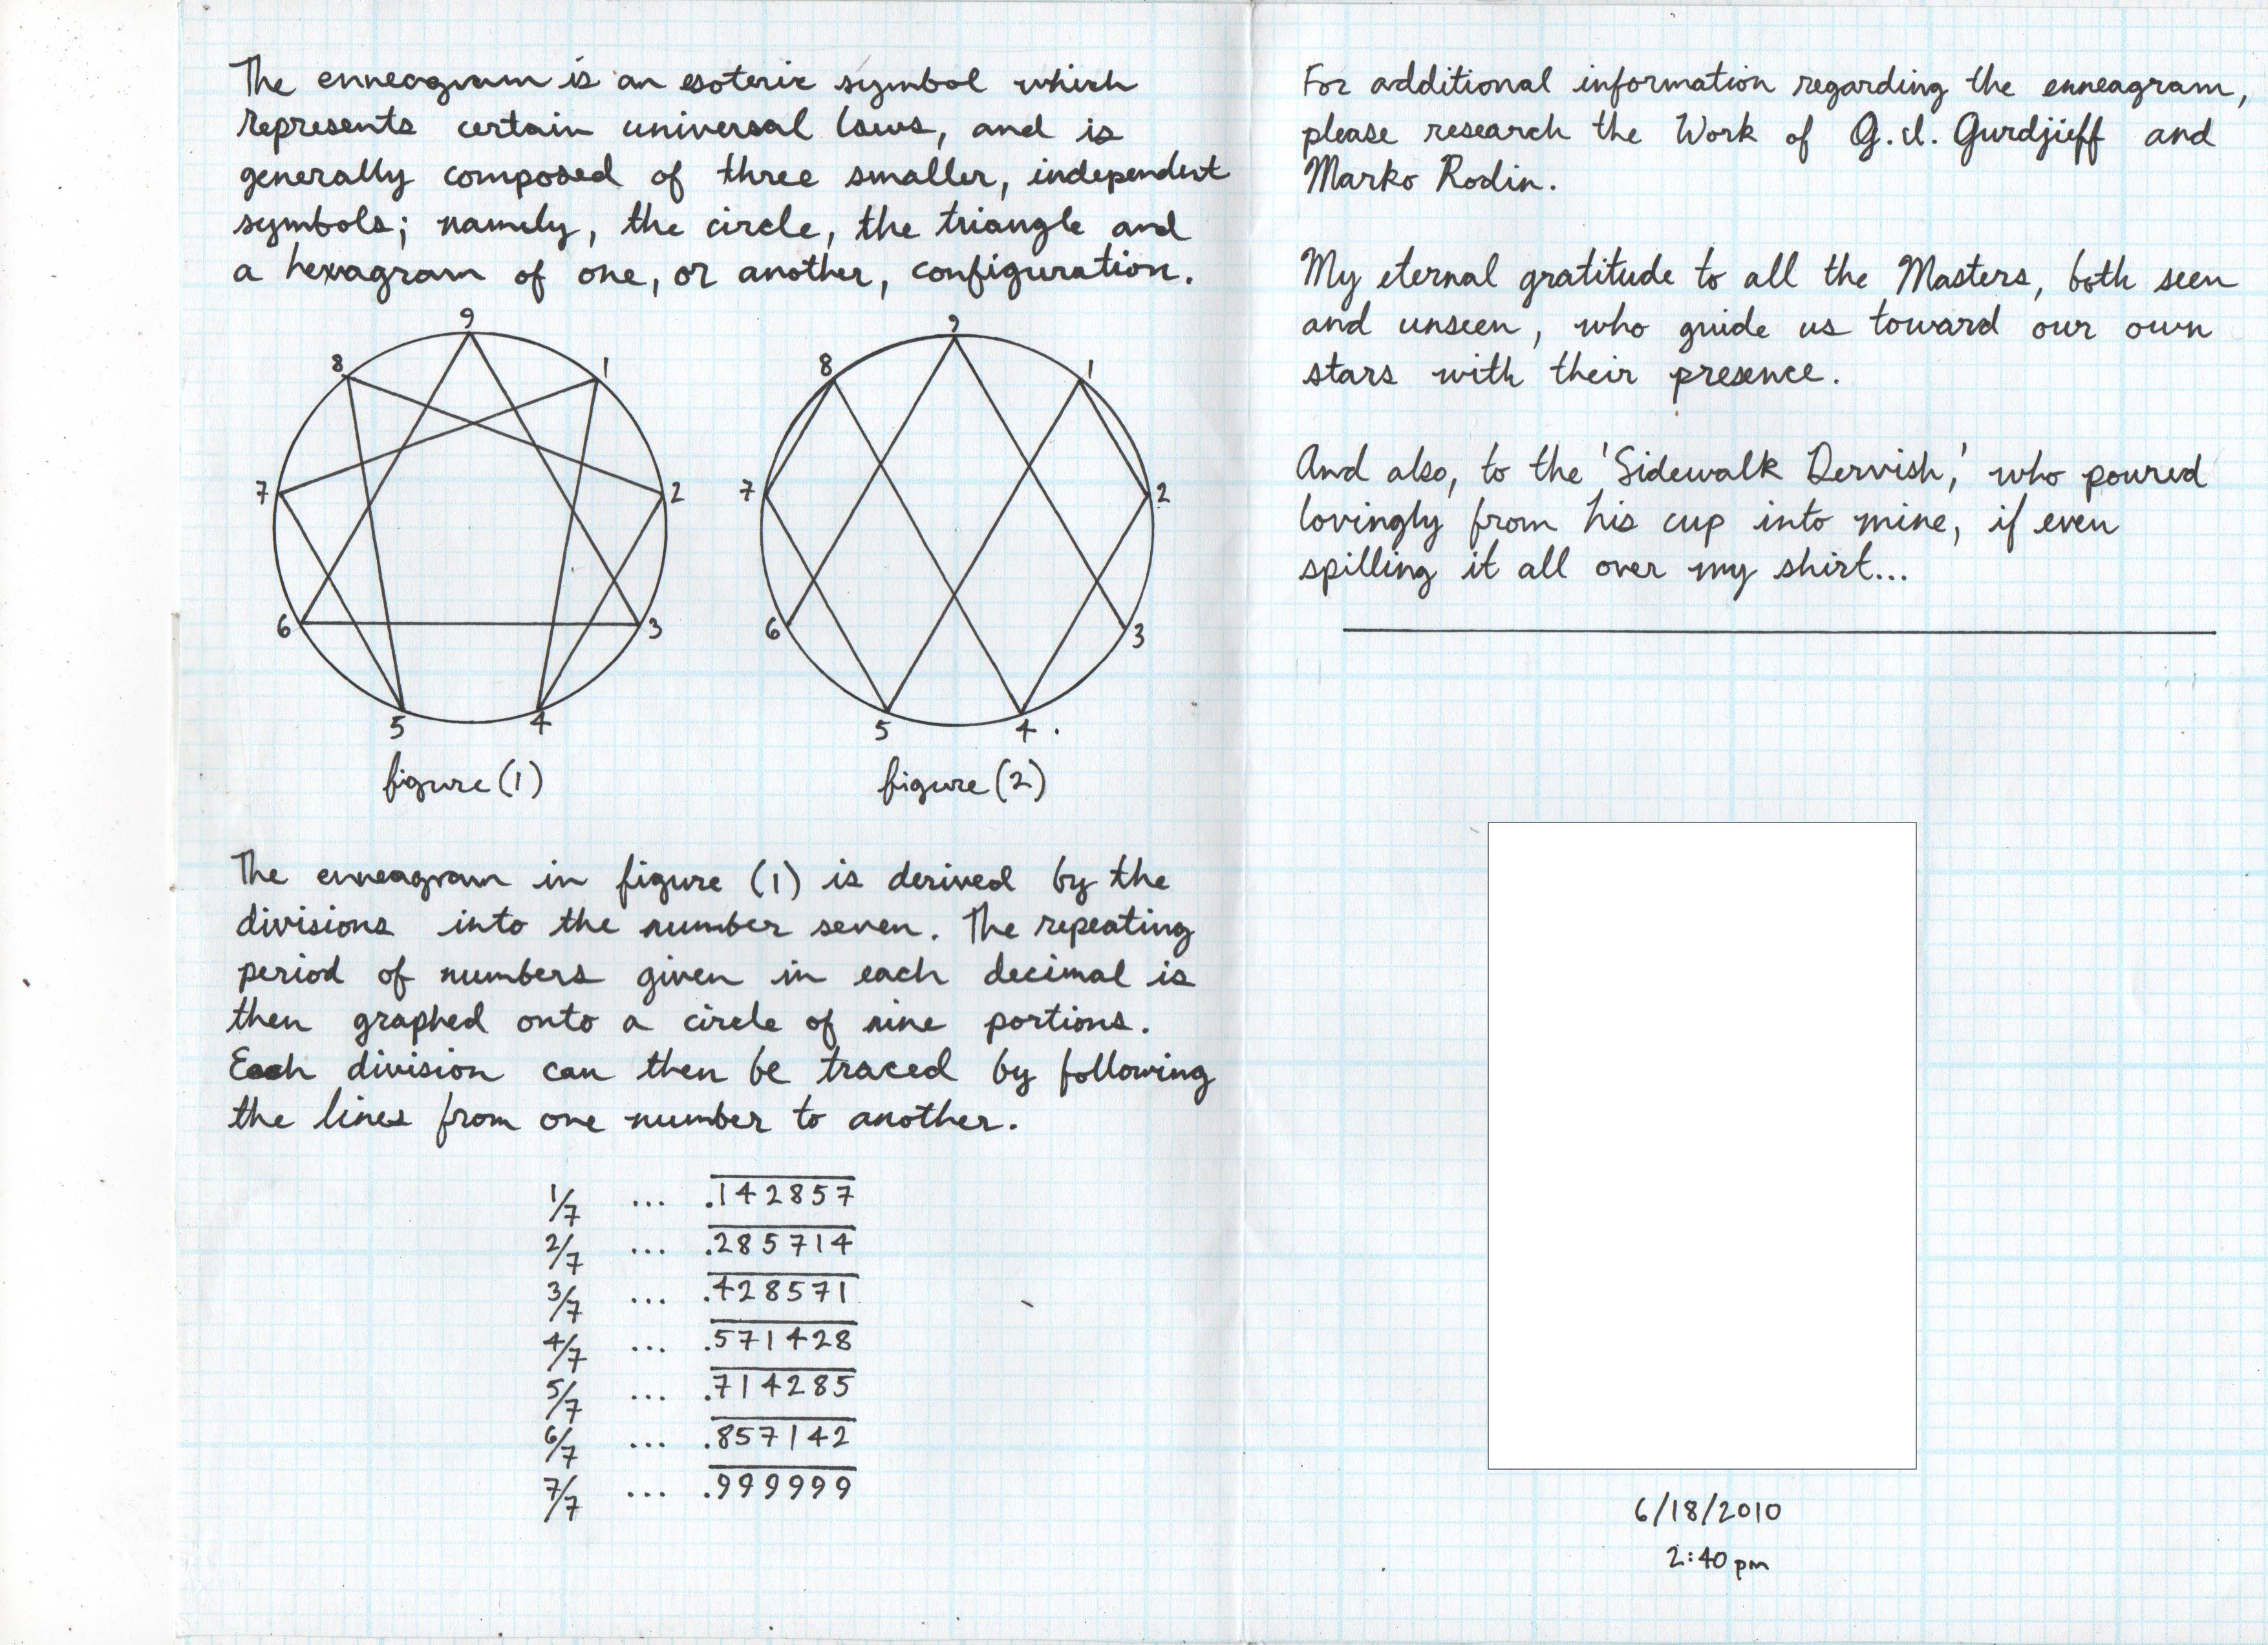 The enneagram is an esoteric symbol which
represents certain universal laws, and is
generally composed of three smaller, independent
symbols; namely, the circle, the triangle and
a hexagram of one, or another, configuration.
9
8
1
7
2
6
3
5
4
figure (1)
9
8
1
7
2
6
3
5
4
figure (2)
The enneagram in figure (1) is derived by the
divisions into the number seven. The repeating
period of numbers given in each decimal is
then graphed onto a circle of nine portions.
Each division can then be traced by following
the lines from one number to another.
1/7 ... .142857
2/7 ... .285714
3/7 ... .428571
4/7 ... .571428
5/7 ... .714285
6/7 ... .857142
7/7 ... .999999
For additional information regarding the enneagram,
please research the Work of G.I. Gurdjieff and
Marko Rodin.
My eternal gratitude to all the Masters, both seen
and unseen, who guide us toward our own
stars with their presence.
And also, to the 'Sidewalk Dervish,' who poured
lovingly from his cup into mine, if even
spilling it all over my shirt...
6/18/2010
2:40 pm